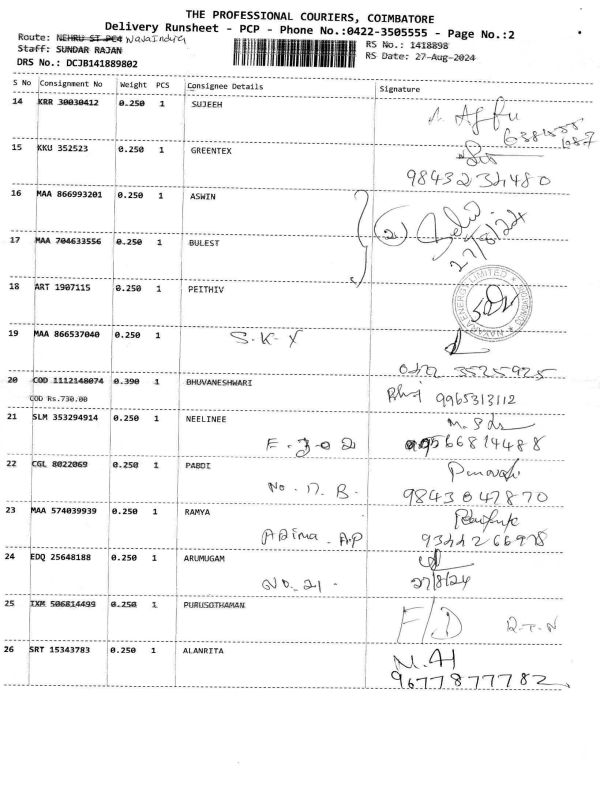 THE PROFESSIONAL COURIERS, COIMBATORE
Delivery Runsheet - PCP - Phone No.:0422-3505555 - Page No.:2
Route: NEHRU ST PC4
Staff: SUNDAR RAJAN
DRS No.: DCJB141889802
RS No.: 1418898
RS Date: 27-Aug-2024
S No Consignment No Weight PCS Consignee Details Signature
14 KRR 30030412 0.250 1 SUJEEH
15 KKU 352523 0.250 1 GREENTEX
9843234480
16 MAA 866993201 0.250 1 ASWIN
2
27/8/24
17 MAA 704633556 0.250 1 BULEST
18 ART 1907115 0.250 1 PEITHIV
NAYARA ENERGY LIMITED
19 MAA 866537040 0.250 1
S.K.X
0422 3525925
20 COD 1112148074 0.390 1 BHUVANESHWARI
COD Rs.730.00
9965313112
21 SLM 353294914 0.250 1 NEELINEE
F. 302
9566814488
22 CGL 8022069 0.250 1 PABDI
No. 17. B.
9843047870
23 MAA 574039939 0.250 1 RAMYA
24 EDQ 25648188 0.250 1 ARUMUGAM
No. 21.
27/8/24
25 IXM 506814499 0.250 1 PURUSOTHAMAN
F/D R.T.N
26 SRT 15343783 0.250 1 ALANRITA
9677877782